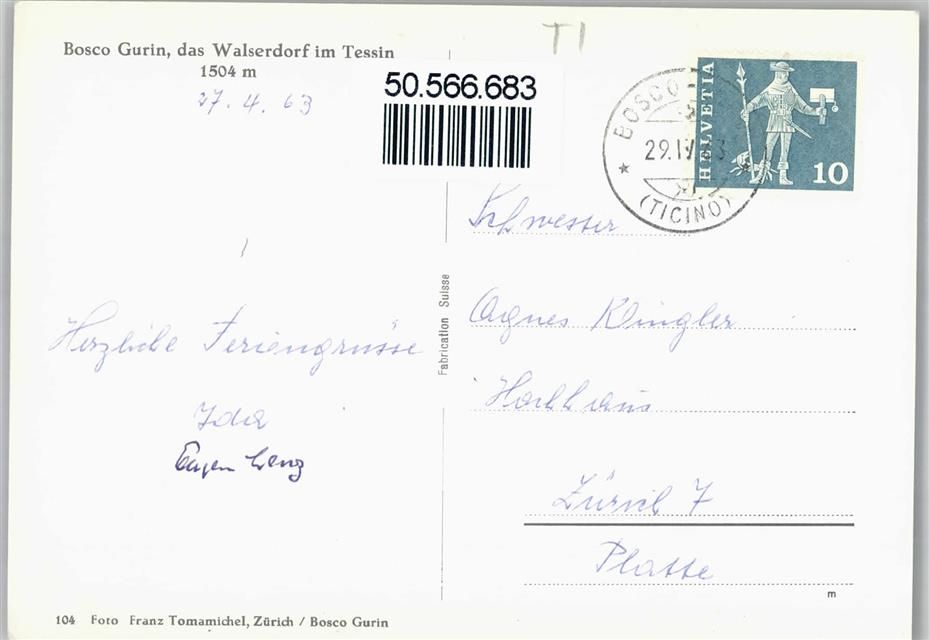 Bosco Gurin, das Walserdorf im Tessin
1504 m
27. 4. 63
TI
50.566.683
BOSCO-
29.IV. 3
(TICINO)
HELVETIA
10
Schwester
Agnes Klingler
Hochhaus
Zürich 7
Platte
Herzliche Feriengrüsse
Ida
Eugen
Fabrication Suisse
m
104 Foto Franz Tomamichel, Zürich / Bosco Gurin